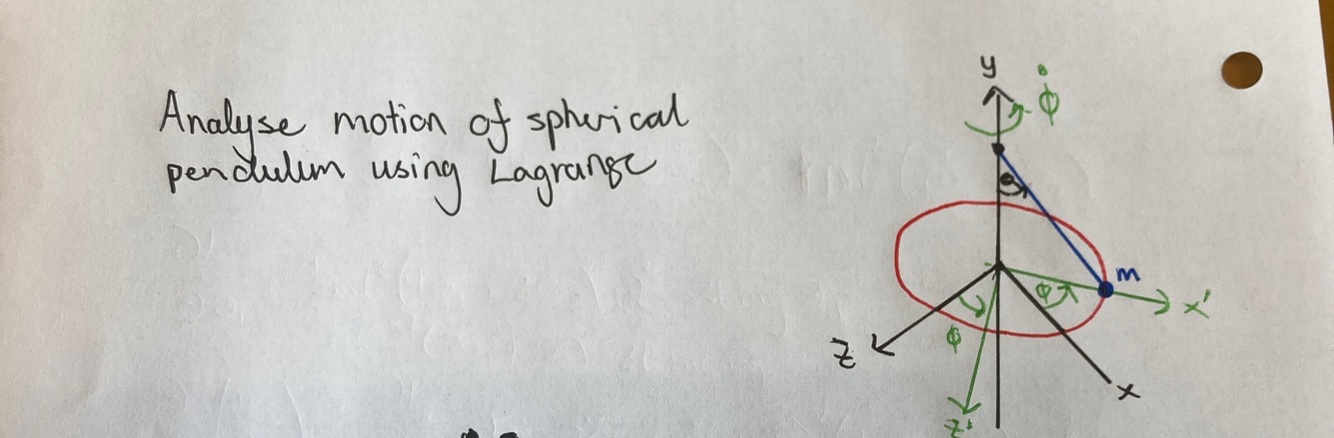 Analyse motion of spherical
pendulum using Lagrange
y
φ̇
θ
m
φ
x'
z
φ
x
z'